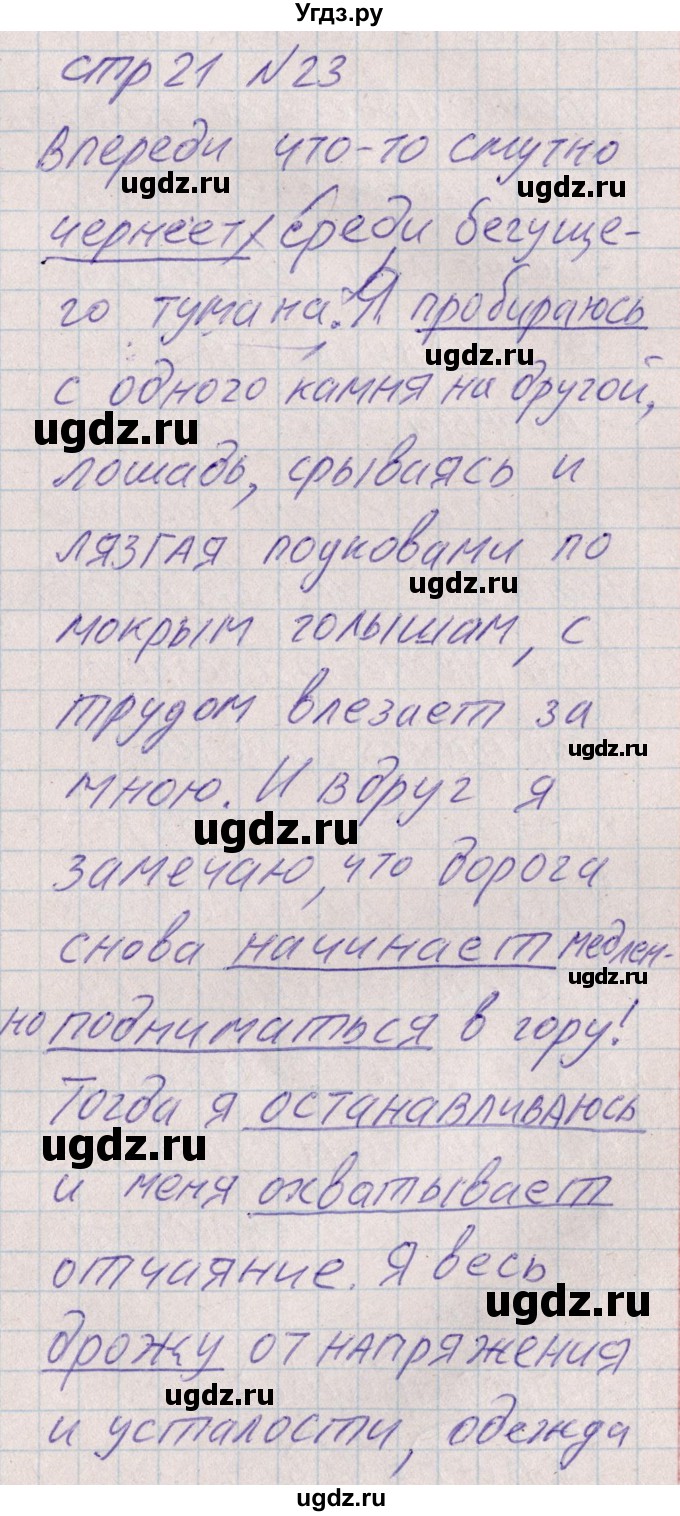 Угдз.ру
стр 21 №23
Впереди что-то смутно
ugdz.ru
ugdz.ru
чернеет среди бегуще-
го тумана. Я пробираюсь
ugdz.ru
с одного камня на другой,
ugdz.ru
лошадь, срываясь и
лязгая подковами по
ugdz.ru
мокрым голышам, с
трудом влезает за
ugdz.ru
мною. И вдруг я
ugdz.ru
замечаю, что дорога
снова начинает медлен-
ugdz.ru
но подниматься в гору!
Тогда я останавливаюсь
ugdz.ru
и меня охватывает
отчаяние. Я весь
ugdz.ru
дрожу от напряжения
ugdz.ru
и усталости, одежда
ugdz.ru